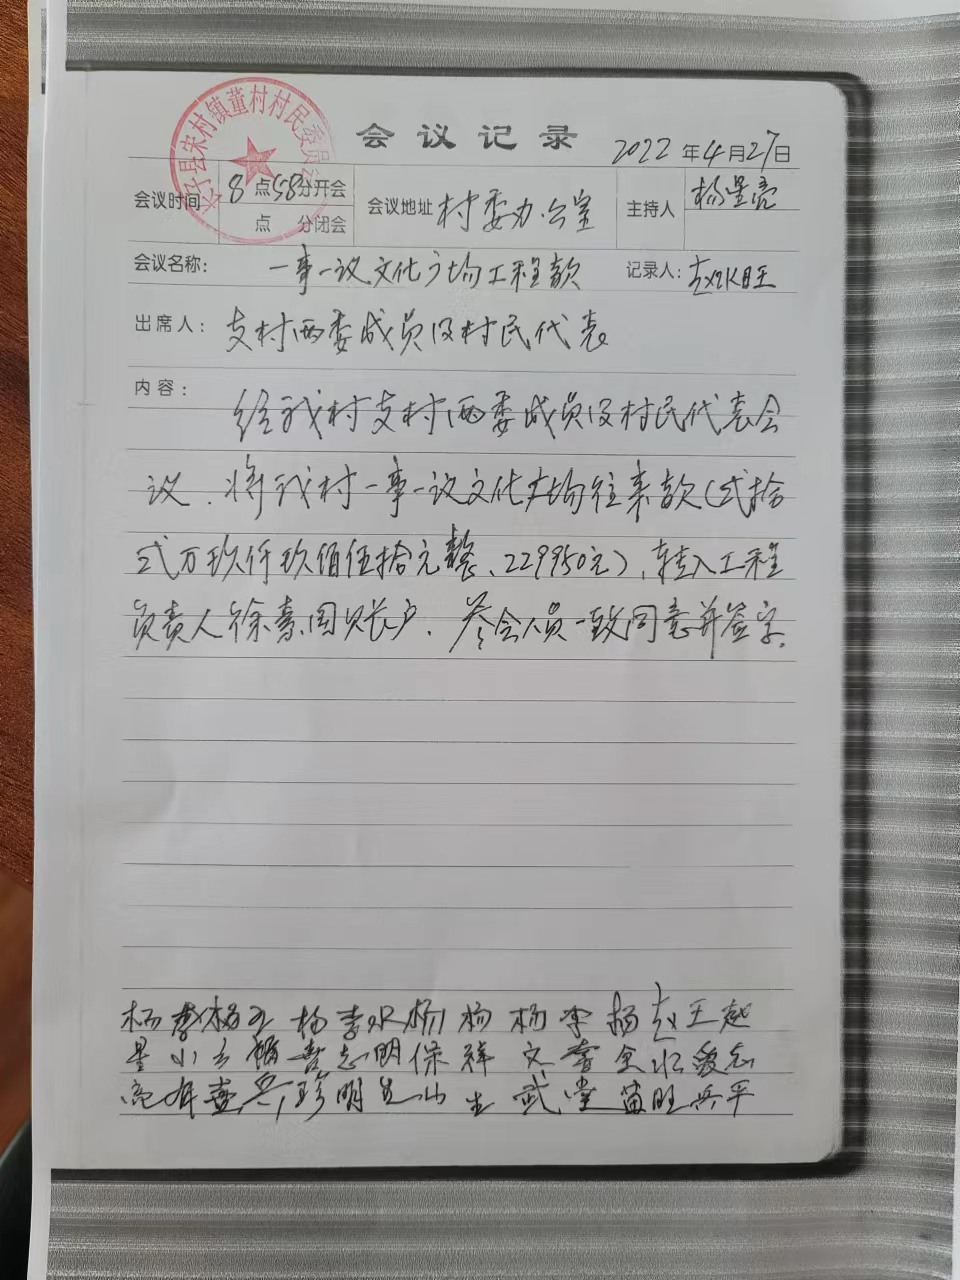 长子县宋村镇董村村民委员会
会议记录
2022年4月27日
会议时间 8点58分开会 会议地址 村委办公室 主持人 杨星亮
点 分闭会
会议名称: 一事一议文化广场工程款 记录人: 赵水旺
出席人: 支村两委成员及村民代表
内容:
经我村支村两委成员及村民代表会
议.将我村一事一议文化广场往来款(贰拾
贰万玖仟玖佰伍拾元整、229950元),转入工程
负责人徐 国账户.参会人员一致同意并签字.
杨 杨 王 杨 李 杨 杨 杨 李 杨 赵 王 赵
星 小 志 明 保 文 全 水 爱 志
亮 珍 明 山 生 武 堂 苗 旺 兵 平